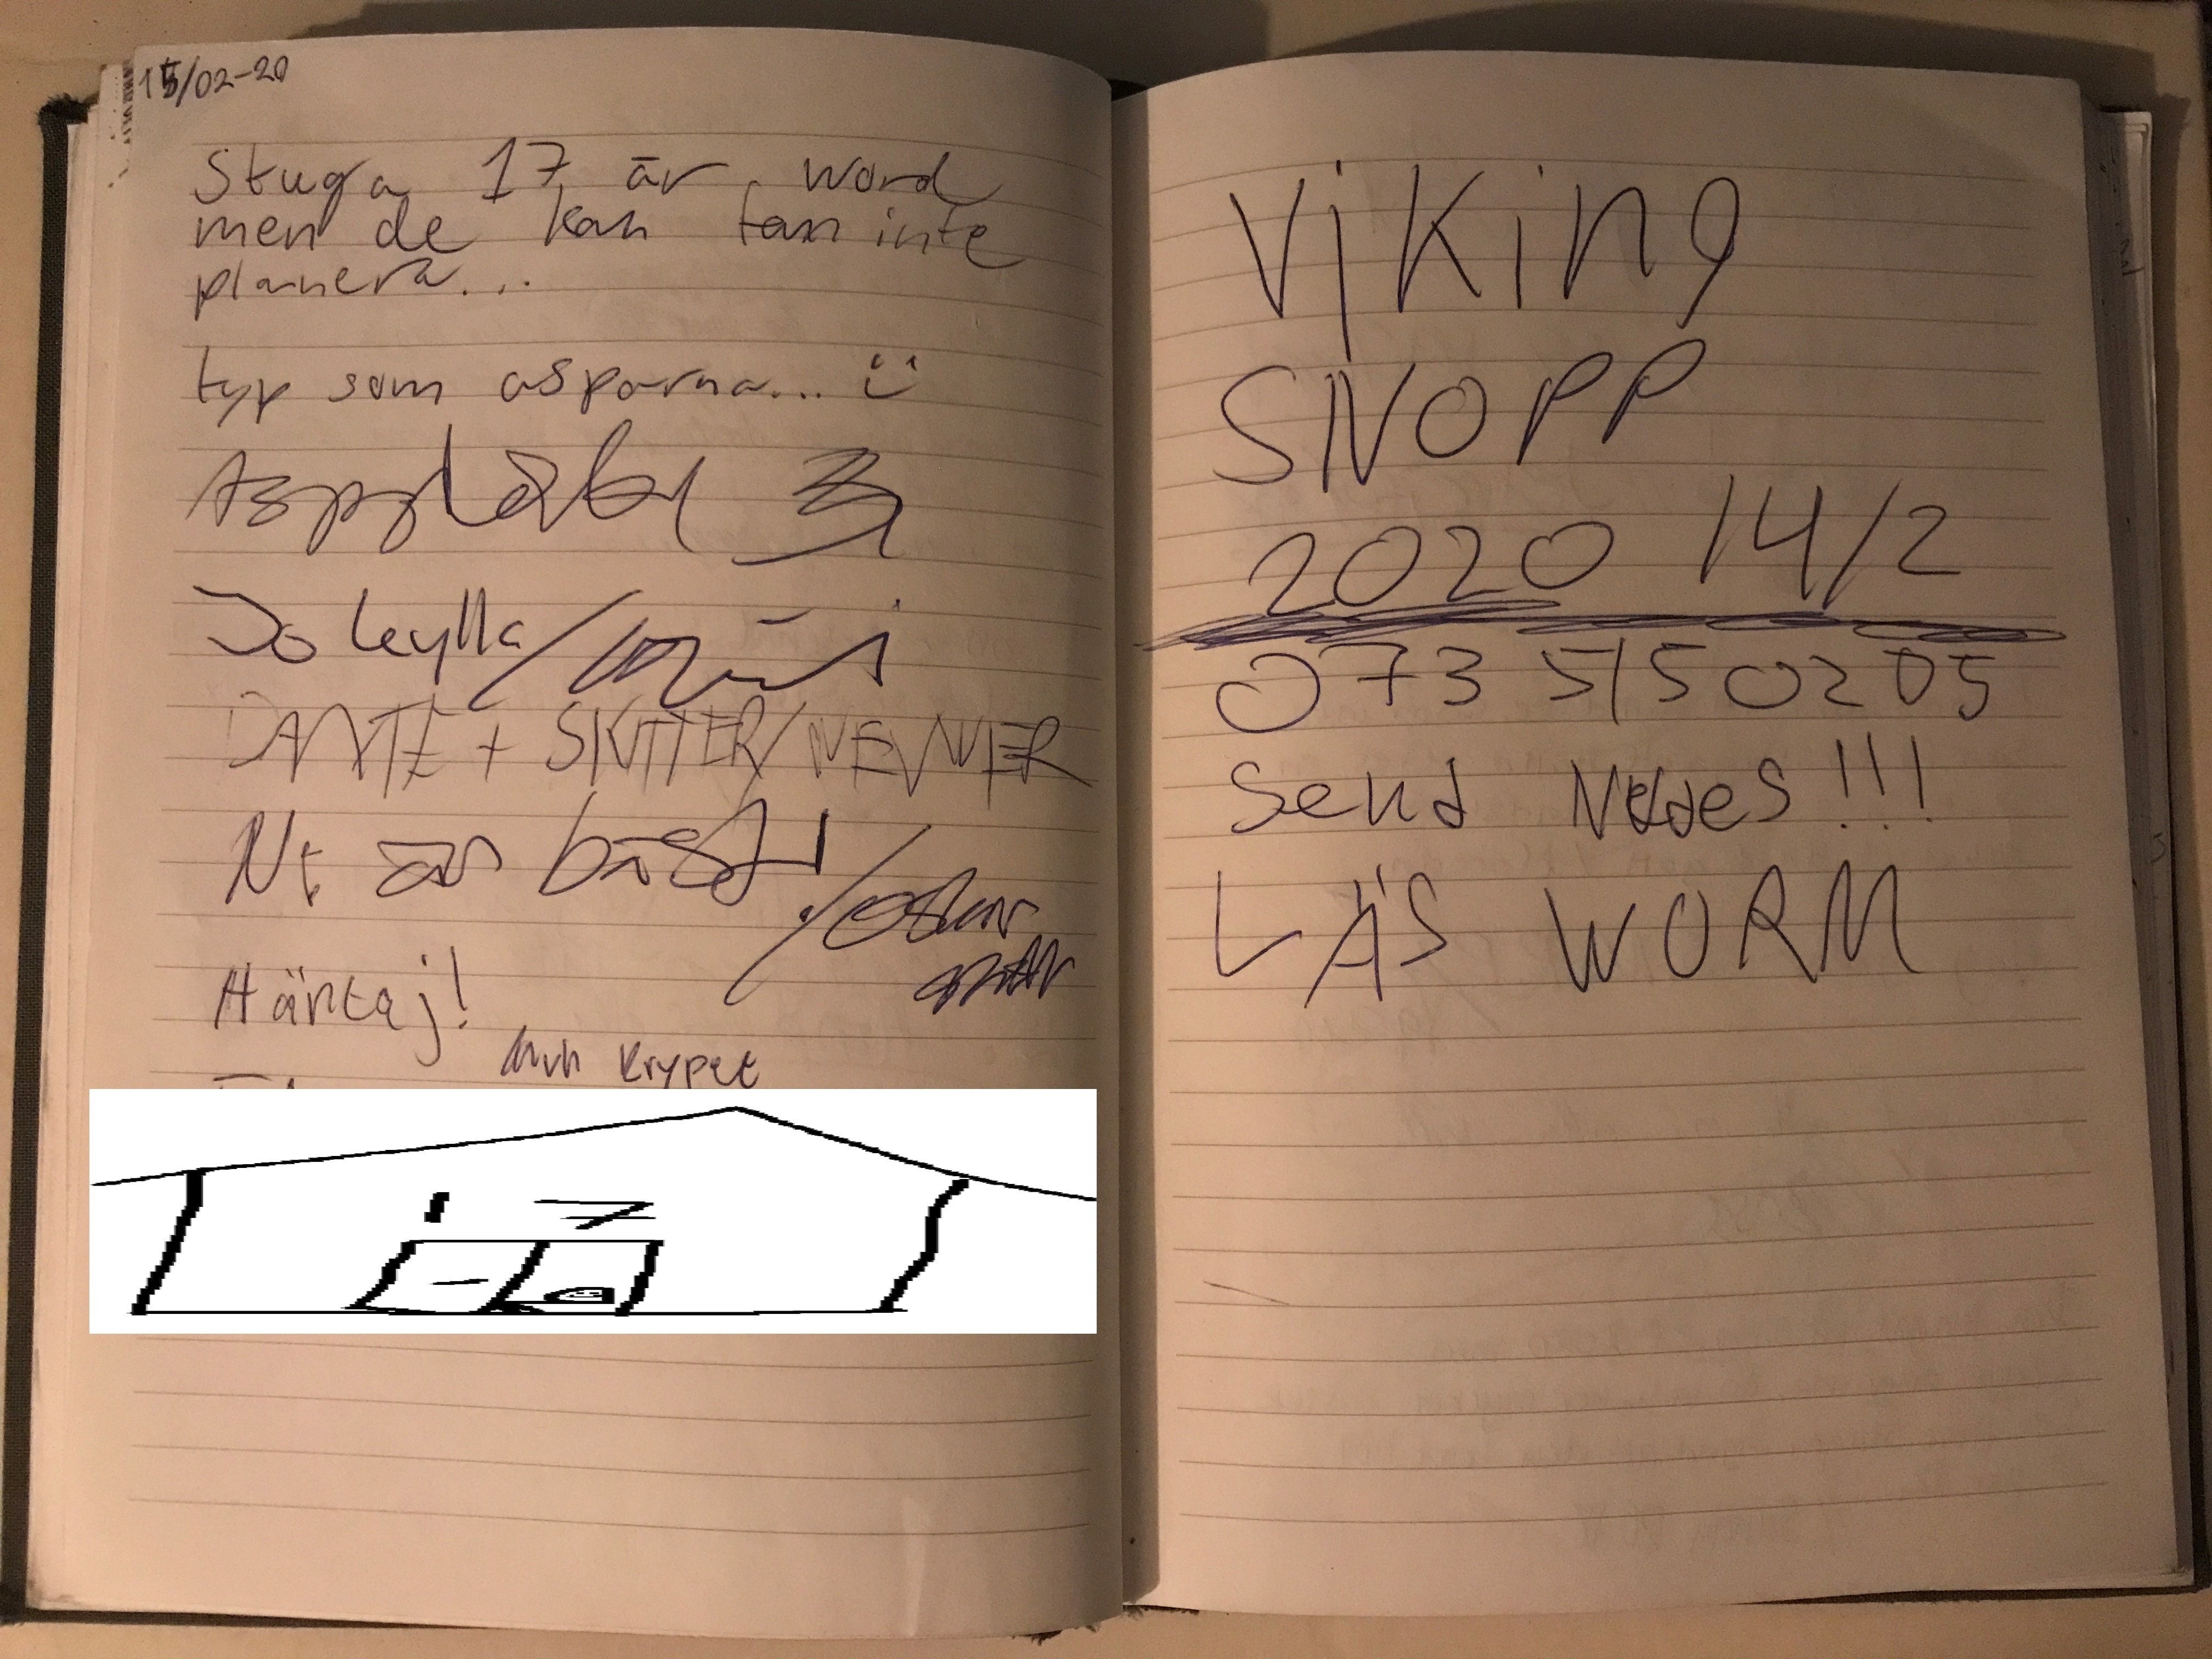 15/02-20
Stuga 17 är word
men de kan fan inte
planera...
typ som asparna... :)
Jo kylla
DANTE + SKITTER/NEVNER
Ni är bäst!
Häntaj!
mvh krypet
17
Viking
SNOPP
2020 14/2
073 515 02 05
Send Nudes!!!
LÄS WORM